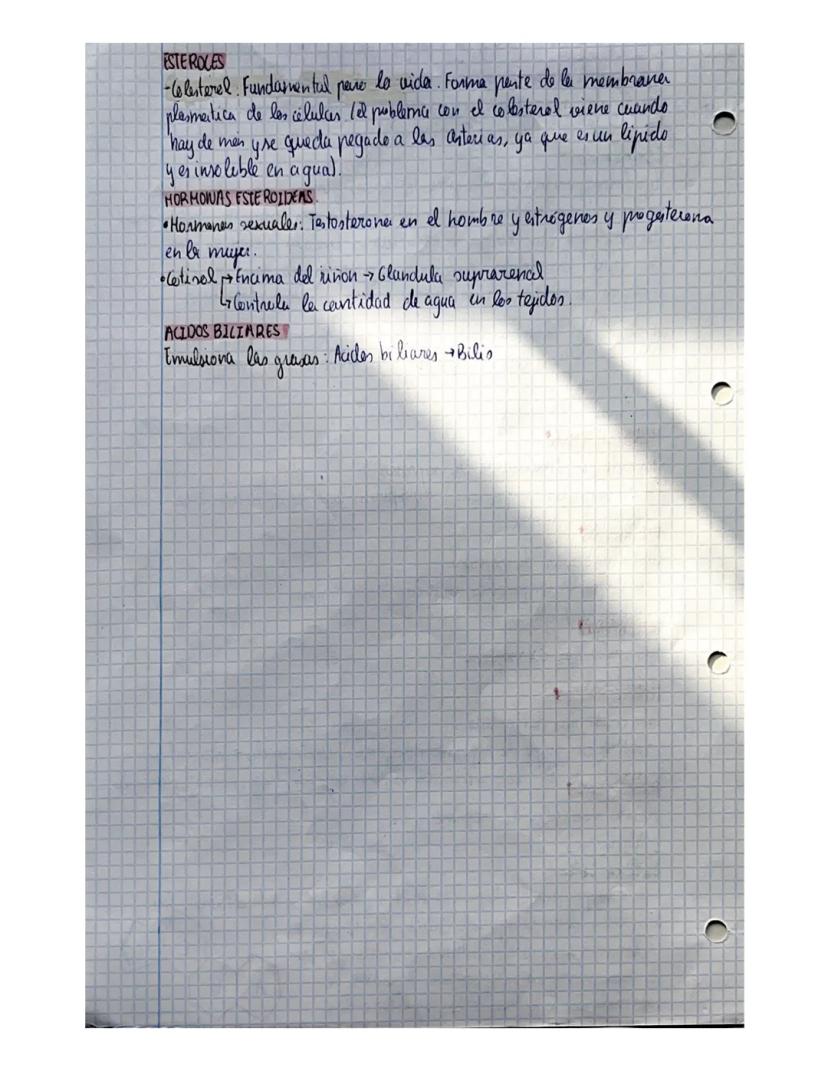 ESTEROLES
-Colesterol. Fundamental para la vida. Forma parte de la membrana
plasmatica de las células (el problema con el colesterol viene cuando
hay de más y se queda pegado a las arterias, ya que es un lípido
y es insoluble en agua).
HORMONAS ESTEROIDEAS.
•Hormonas sexuales: Testosterona en el hombre y estrógenos y progesterona
en la mujer.
•Cortisol → Encima del riñon → Glandula suprarenal
↳ Controla la cantidad de agua en los tejidos.
ACIDOS BILIARES
Emulsiona las grasas: Acidos biliares → Bilis